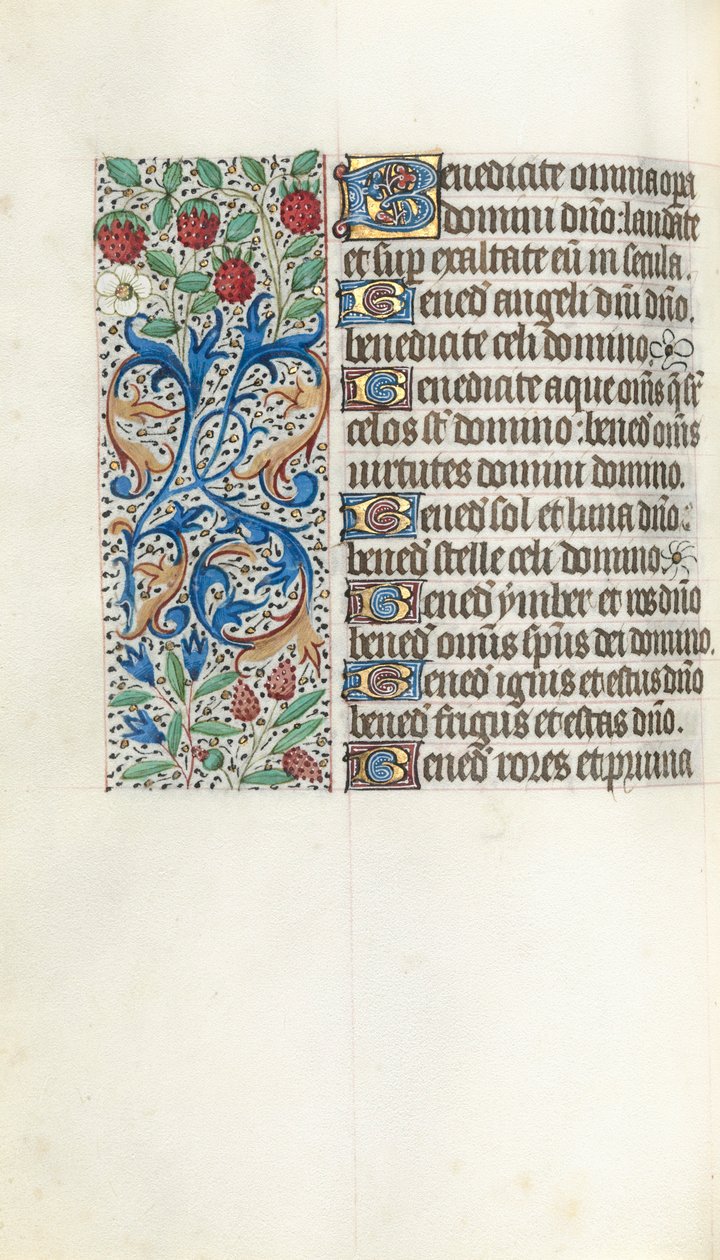 Benedicite omnia opa
domini dño: laudate
et sup exaltate eũ in secula.
Bened' angeli dñi dño.
benedicite celi domino
Benedicite aque om̃s q̃ sr̃
celos st̃ domino: bened' om̃s
uirtutes domini domino.
Bened' sol et luna dño.
bened' stelle celi domino
Bened' ymber et ros dño
bened' om̃is sp̃us dei domino.
Bened' ignis et estus dño
bened' frigus et estas dño.
Bened' rores et pruina